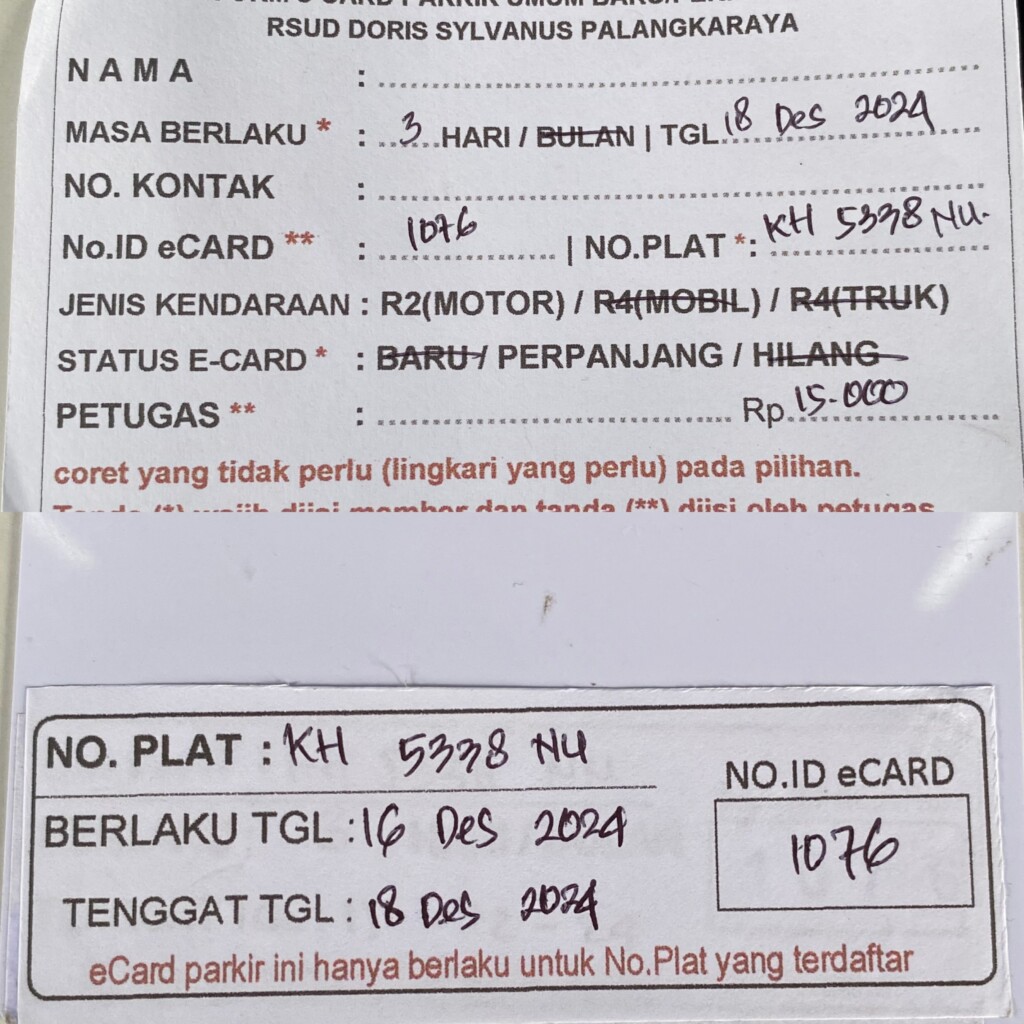 RSUD DORIS SYLVANUS PALANGKARAYA
NAMA :
MASA BERLAKU * : 3 HARI / BULAN | TGL 18 Des 2024
NO. KONTAK :
No.ID eCARD ** : 1076 | NO.PLAT *: KH 5338 NU.
JENIS KENDARAAN : R2(MOTOR) / R4(MOBIL) / R4(TRUK)
STATUS E-CARD * : BARU / PERPANJANG / HILANG
PETUGAS ** : Rp. 15.000
coret yang tidak perlu (lingkari yang perlu) pada pilihan.
Tanda (*) wajib diisi member dan tanda (**) diisi oleh petugas
NO. PLAT : KH 5338 NU
NO.ID eCARD
BERLAKU TGL : 16 Des 2024
1076
TENGGAT TGL : 18 Des 2024
eCard parkir ini hanya berlaku untuk No.Plat yang terdaftar